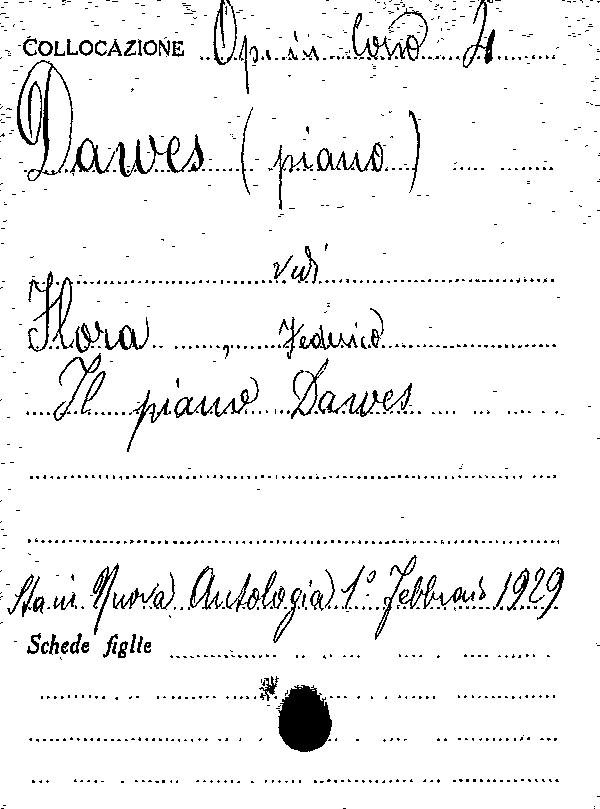 COLLOCAZIONE Op. in Corso
Dawes (piano)
vedi
Flora, Federico
Il piano Dawes
Sta in Nuova Antologia 1° Febbraio 1929
Schede figlie